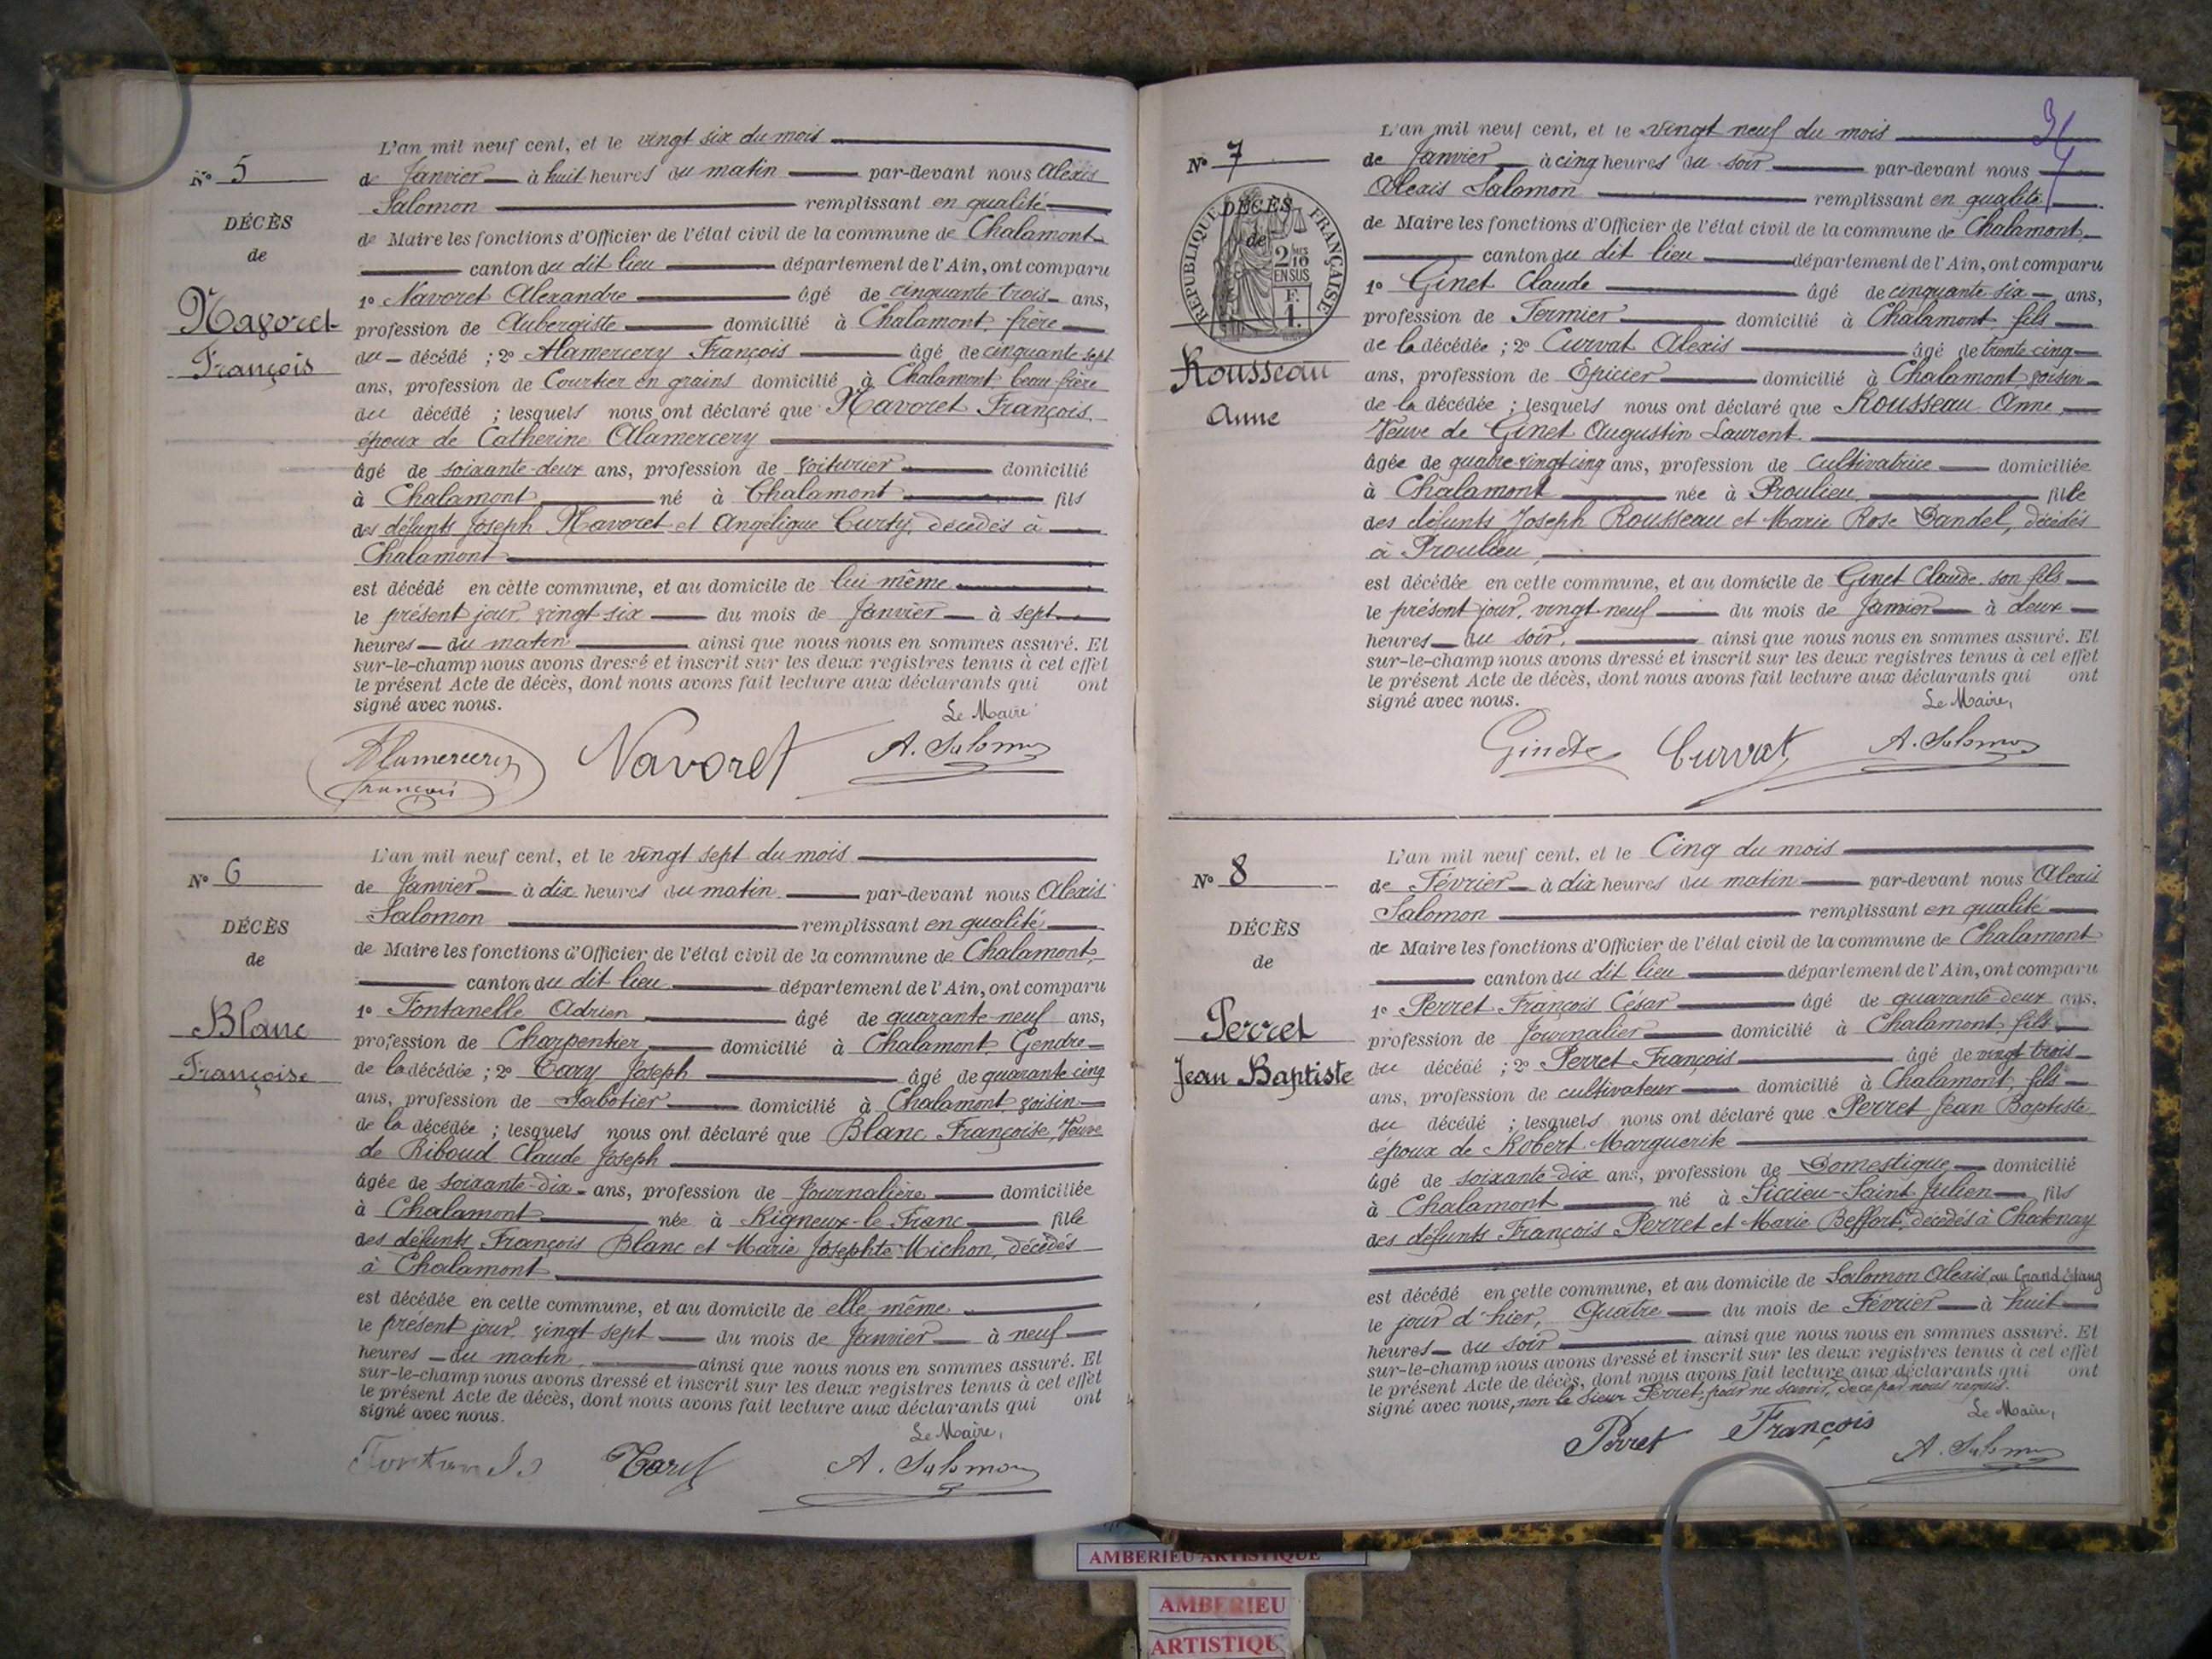 L'an mil neuf cent, et le vingt six du mois
N° 5
de Janvier à huit heures du matin par-devant nous Alexis
Salomon remplissant en qualité
DÉCÈS
de Maire les fonctions d'Officier de l'état civil de la commune de Chalamont
de
canton du dit lieu département de l'Ain, ont comparu
1° Navoret Alexandre âgé de cinquante trois ans,
Navoret
profession de Aubergiste domicilié à Chalamont, frère
François
du décédé ; 2° Alamercery François âgé de cinquante sept
ans, profession de Courtier en grains domicilié à Chalamont beau frère
du décédé ; lesquels nous ont déclaré que Navoret François,
époux de Catherine Alamercery
âgé de soixante-deux ans, profession de voiturier domicilié
à Chalamont né à Chalamont fils
des défunts Joseph Navoret et Angélique Curty, décédés à
Chalamont
est décédé en cette commune, et au domicile de lui même
le présent jour, vingt six du mois de Janvier à sept
heures du matin ainsi que nous nous en sommes assuré. Et
sur-le-champ nous avons dressé et inscrit sur les deux registres tenus à cet effet
le présent Acte de décès, dont nous avons fait lecture aux déclarants qui ont
signé avec nous.
Le Maire
Alamercery Navoret A. Salomon
François
L'an mil neuf cent, et le vingt sept du mois
N° 6
de Janvier à dix heures du matin par-devant nous Alexis
Salomon remplissant en qualité
DÉCÈS
de Maire les fonctions d'Officier de l'état civil de la commune de Chalamont,
de
canton du dit lieu département de l'Ain, ont comparu
1° Fontanelle Adrien âgé de quarante neuf ans,
Blanc
profession de Charpentier domicilié à Chalamont, Gendre
Françoise
de la décédée ; 2° Joseph âgé de quarante cinq
ans, profession de Sabotier domicilié à Chalamont, voisin
de la décédée ; lesquels nous ont déclaré que Blanc Françoise, Veuve
de Riboud Claude Joseph
âgée de soixante-dix ans, profession de Journalière domiciliée
à Chalamont née à Rigneux-le-Franc fille
des défunts François Blanc et Marie Josephte Michon, décédés
à Chalamont
est décédée en cette commune, et au domicile de elle même
le présent jour, vingt sept du mois de Janvier à neuf
heures du matin, ainsi que nous nous en sommes assuré. Et
sur-le-champ nous avons dressé et inscrit sur les deux registres tenus à cet effet
le présent Acte de décès, dont nous avons fait lecture aux déclarants qui ont
signé avec nous.
Le Maire,
A. Salomon
L'an mil neuf cent, et le vingt neuf du mois
N° 7
de Janvier à cinq heures du soir par-devant nous
Alexis Salomon remplissant en qualité
DÉCÈS
RÉPUBLIQUE FRANÇAISE
de
2/10 EN SUS
F. 1.
de Maire les fonctions d'Officier de l'état civil de la commune de Chalamont,
canton du dit lieu département de l'Ain, ont comparu
1° Ginet Claude âgé de cinquante six ans,
profession de Fermier domicilié à Chalamont, fils
de la décédée ; 2° Curvat Alexis âgé de trente cinq
Rousseau
ans, profession de Epicier domicilié à Chalamont, voisin
Anne
de la décédée ; lesquels nous ont déclaré que Rousseau Anne,
Veuve de Ginet Augustin Laurent.
âgée de quatre vingt cinq ans, profession de cultivatrice domiciliée
à Chalamont née à Proulieu fille
des défunts Joseph Rousseau et Marie Rose Dandel, décédés
à Proulieu
est décédée en cette commune, et au domicile de Ginet Claude son fils
le présent jour, vingt-neuf du mois de Janvier à deux
heures du soir, ainsi que nous nous en sommes assuré. Et
sur-le-champ nous avons dressé et inscrit sur les deux registres tenus à cet effet
le présent Acte de décès, dont nous avons fait lecture aux déclarants qui ont
signé avec nous.
Le Maire,
Curvat A. Salomon
L'an mil neuf cent, et le Cinq du mois
N° 8
de Février à dix heures du matin par-devant nous Alexis
Salomon remplissant en qualité
DÉCÈS
de Maire les fonctions d'Officier de l'état civil de la commune de Chalamont
de
canton du dit lieu département de l'Ain, ont comparu
1° Perret François César âgé de quarante-deux ans,
Perret
profession de Journalier domicilié à Chalamont, fils
Jean Baptiste
du décédé ; 2° Perret François âgé de vingt trois
ans, profession de cultivateur domicilié à Chalamont, fils
du décédé ; lesquels nous ont déclaré que Perret Jean Baptiste
époux de Robert Marguerite
âgé de soixante-dix ans, profession de Domestique domicilié
à Chalamont né à Siccieu-Saint Julien fils
des défunts François Perret et Marie Beffort, décédés à Chatenay
est décédé en cette commune, et au domicile de Salomon Alexis au Grand étang
le jour d'hier, Quatre du mois de Février à huit
heures du soir ainsi que nous nous en sommes assuré. Et
sur-le-champ nous avons dressé et inscrit sur les deux registres tenus à cet effet
le présent Acte de décès, dont nous avons fait lecture aux déclarants qui ont
signé avec nous, non le sieur Perret, pour ne savoir, de ce par nous requis.
Le Maire,
Perret François A. Salomon
AMBERIEU ARTISTIQUE
AMBERIEU
ARTISTIQU